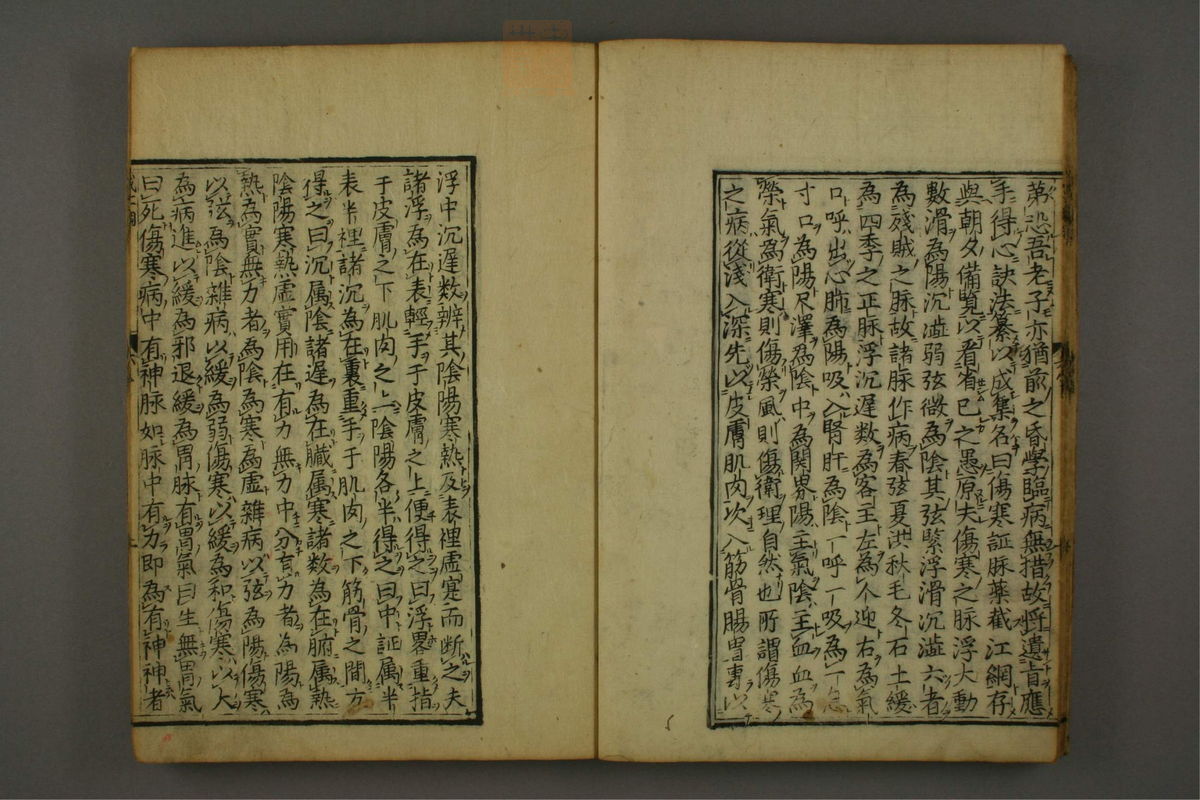 第恐吾老子亦猶前之昏學臨病無措故將遺旨應
手得心訣法纂以成集名曰傷寒証脉藥截江網存
與朝夕備覽以看省已之愚原夫傷寒之脉浮大動
數滑為陽沉澁弱弦微為陰其弦緊浮滑沉澁六者
為殘賊之脉故諸脉作病春弦夏洪秋毛冬石土緩
為四季之正脉浮沉遲数為客主左為人迎右為氣
口呼出心肺為陽吸入腎肝為陰一呼一吸為一息
寸口為陽尺澤為陰中為関界陽主氣陰主血血為
榮氣為衛寒則傷榮風則傷衛理自然也所謂傷寒
之病從淺入深先以皮膚肌肉次入筋骨腸胃專以
浮中沉遲数辨其陰陽寒熱及表裡虚寔而断之夫
諸浮為在表輕手于皮膚之上便得之曰浮畧重指
于皮膚之下肌肉之上陰陽各半得之曰中証属半
表半裡諸沉為在裏重手于肌肉之下筋骨之間方
得之曰沉属陰諸遲為在臟属寒諸数為在腑属熱
陰陽寒熱虚實用在有力無力中分有力者為陽為
熱為實無力者為陰為寒為虚雜病以弦為陽傷寒
以弦為陰雜病以緩為弱傷寒以緩為和傷寒以大
為病進以緩為邪退緩為胃脉有胃氣曰生無胃氣
曰死傷寒病中有神脉如脉中有力即為有神神者